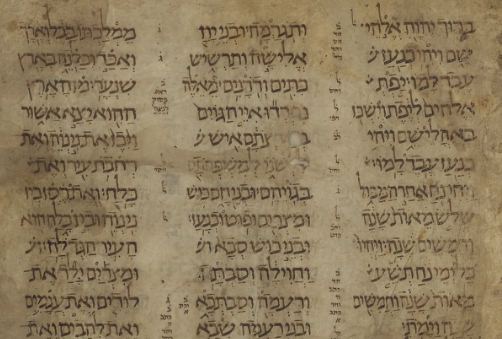 ברוך יהוה אלהי
שם ויהי כנען
עבד למו יפת
אלהים ליפת וישכן
באהלי שם ויהי
כנען עבד למו
ויחי נח אחר המבול
שלש מאות שנה
וחמשים שנה ויהיו
כל ימי נח תשע
מאות שנה וחמשים
שנה וימת
ותגרמה ובני יון
אלישה ותרשיש
כתים ודדנים מאלה
נפרדו איי הגוים
בארצתם איש
ללשנו למשפחתם
בגויהם ובני חם כוש
ומצרים ופוט וכנען
ובני כוש סבא
וחוילה וסבתה
ורעמה וסבתכא
ובני רעמה שבא
ממלכתו בבל וארך
ואכד וכלנה בארץ
שנער מן הארץ
ההוא יצא אשור
ויבן את נינוה ואת
רחבת עיר ואת
כלח ואת רסן בין
נינוה ובין כלח הוא
העיר הגדלה
ומצרים ילד את
לודים ואת ענמים
ואת להבים ואת